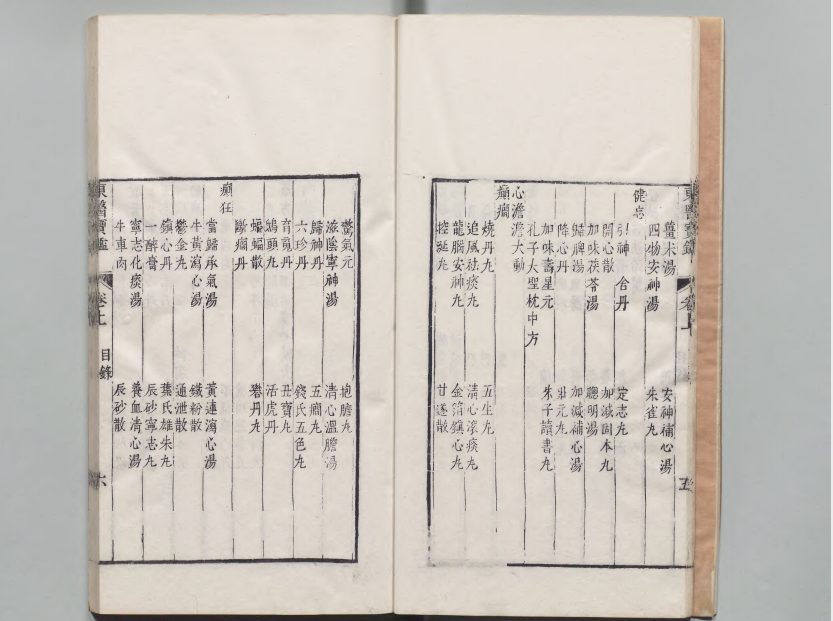 東醫寶鑑 卷上 五
薑朮湯 安神補心湯
四物安神湯 朱雀丸
健忘
引神 舍丹 定志丸
開心散 加減固本丸
加味茯苓湯 聰明湯
歸脾湯 加減補心湯
降心丹 壯元丸
加味壽星元 朱子讀書丸
孔子大聖枕中方
心澹澹大動
癲癇
燒丹丸 五生丸
追風祛痰丸 清心滾痰丸
龍腦安神丸 金箔鎮心丸
控涎丸 甘遂散
驚氣元 抱膽丸
滋陰寧神湯 清心溫膽湯
歸神丹 五癇丸
六珍丹 錢氏五色丸
育魂丹 丑寶丸
鴟頭丸 活虎丹
蝙蝠散 礬丹丸
斷癇丹
癲狂
當歸承氣湯 黃連瀉心湯
牛黃瀉心湯 鐵粉散
鬱金丸 通泄散
鎮心丹 葉氏雄朱丸
一醉膏 辰砂寧志丸
寧志化痰湯 養血清心湯
牛車肉 辰砂散
東醫寶鑑 卷上 目錄 六